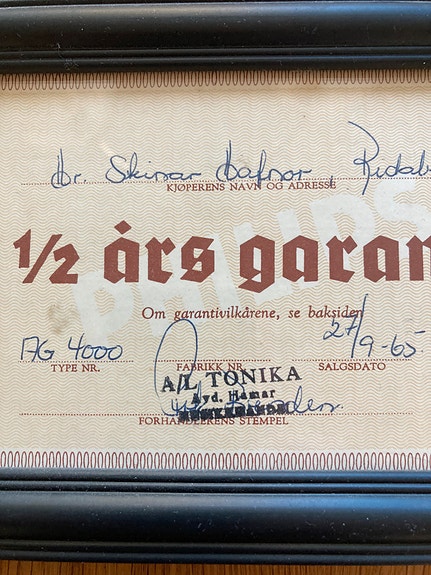 Hr. Skinar Hafnor, Ridab
KJØPERENS NAVN OG ADRESSE
1/2 års garan
PHILIPS
Om garantivilkårene, se baksiden
AG 4000 27/9-65.
TYPE NR. FABRIKK NR. SALGSDATO
A/L TONIKA
Avd. Hamar
FORHANDLERENS STEMPEL